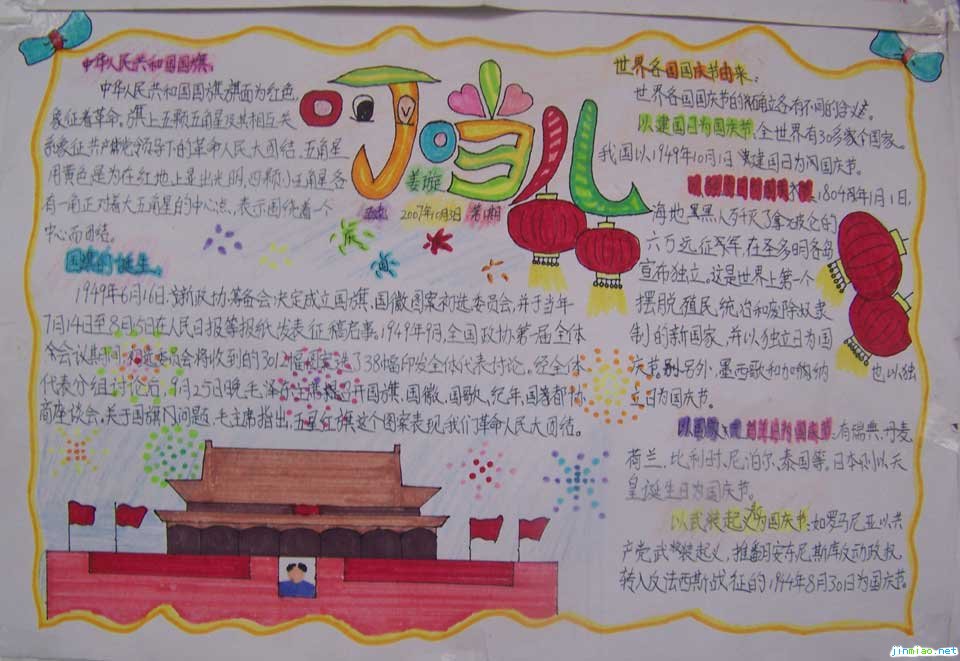 中华人民共和国国旗:
中华人民共和国国旗旗面为红色,
象征着革命。旗上五颗五角星及其相互关
系象征共产党领导下的革命人民大团结。五角星
用黄色是为在红地上显出光明,四颗小五角星各
有一角正对着大五角星的中心点,表示围绕着一个
中心而团结。
国旗的诞生:
1949年6月16日,新政协筹备会决定成立国旗,国徽图案初选委员会,并于当年
7月14日至8月15日在人民日报等报纸发表征稿启事。1949年9月,全国政协第一届全体
会议期间,初选委员会将收到的3012幅图案选了38幅印发全体代表讨论。经全体
代表分组讨论后,9月25日晚,毛泽东主席召开国旗,国徽,国歌,纪年,国著都协
商座谈会。关于国旗问题,毛主席指出,五星红旗这个图案表现我们革命人民大团结。
叮当儿
姜璇
2007年10月3日 第1期
世界各国国庆节由来:
世界各国国庆节的确立各有不同的含义。
以建国日为国庆节,全世界有30多家个国家。
我国以1949年10月1日建国日为国庆节。
1804年1月1日,
海地黑人歼灭了拿破仑的
六万远征军,在圣多明各岛
宣布独立。这是世界上第一个
摆脱殖民统治和废除奴隶
制的新国家,并以独立日为国
庆节。另外,墨西歌和加纳也以独
立日为国庆节。
有瑞典,丹麦,
荷兰,比利时,尼泊尔,泰国等,日本则以天
皇诞生日为国庆节。
以武装起义为国庆节:如罗马尼亚以共
产党武装起义,推翻安东尼斯库反动政权,
转入反法西斯战征的1944年8月30日为国庆节。
jinmiao.net